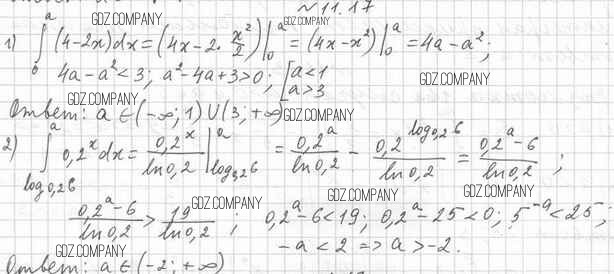 № 11.17
GDZ.COMPANY GDZ.COMPANY
1) ∫₀ᵃ (4-2x)dx = (4x - 2·x²/2)|₀ᵃ = (4x-x²)|₀ᵃ = 4a-a²;
4a-a²<3; a²-4a+3>0; [a<1 a>3 GDZ.COMPANY
GDZ.COMPANY
Ответ: a∈(-∞;1)∪(3;+∞) GDZ.COMPANY
2) ∫_{log₀,₂6}^{a} 0,2ˣdx = 0,2ˣ/ln0,2 |_{log₀,₂6}^{a} = 0,2ᵃ/ln0,2 - 0,2^{log₀,₂6}/ln0,2 = (0,2ᵃ-6)/ln0,2;
GDZ.COMPANY GDZ.COMPANY
(0,2ᵃ-6)/ln0,2 > 19/ln0,2; 0,2ᵃ-6<19; 0,2ᵃ-25<0; 5⁻ᵃ<25;
GDZ.COMPANY GDZ.COMPANY
-a<2 => a>-2.
GDZ.COMPANY
Ответ: a∈(-2;+∞)